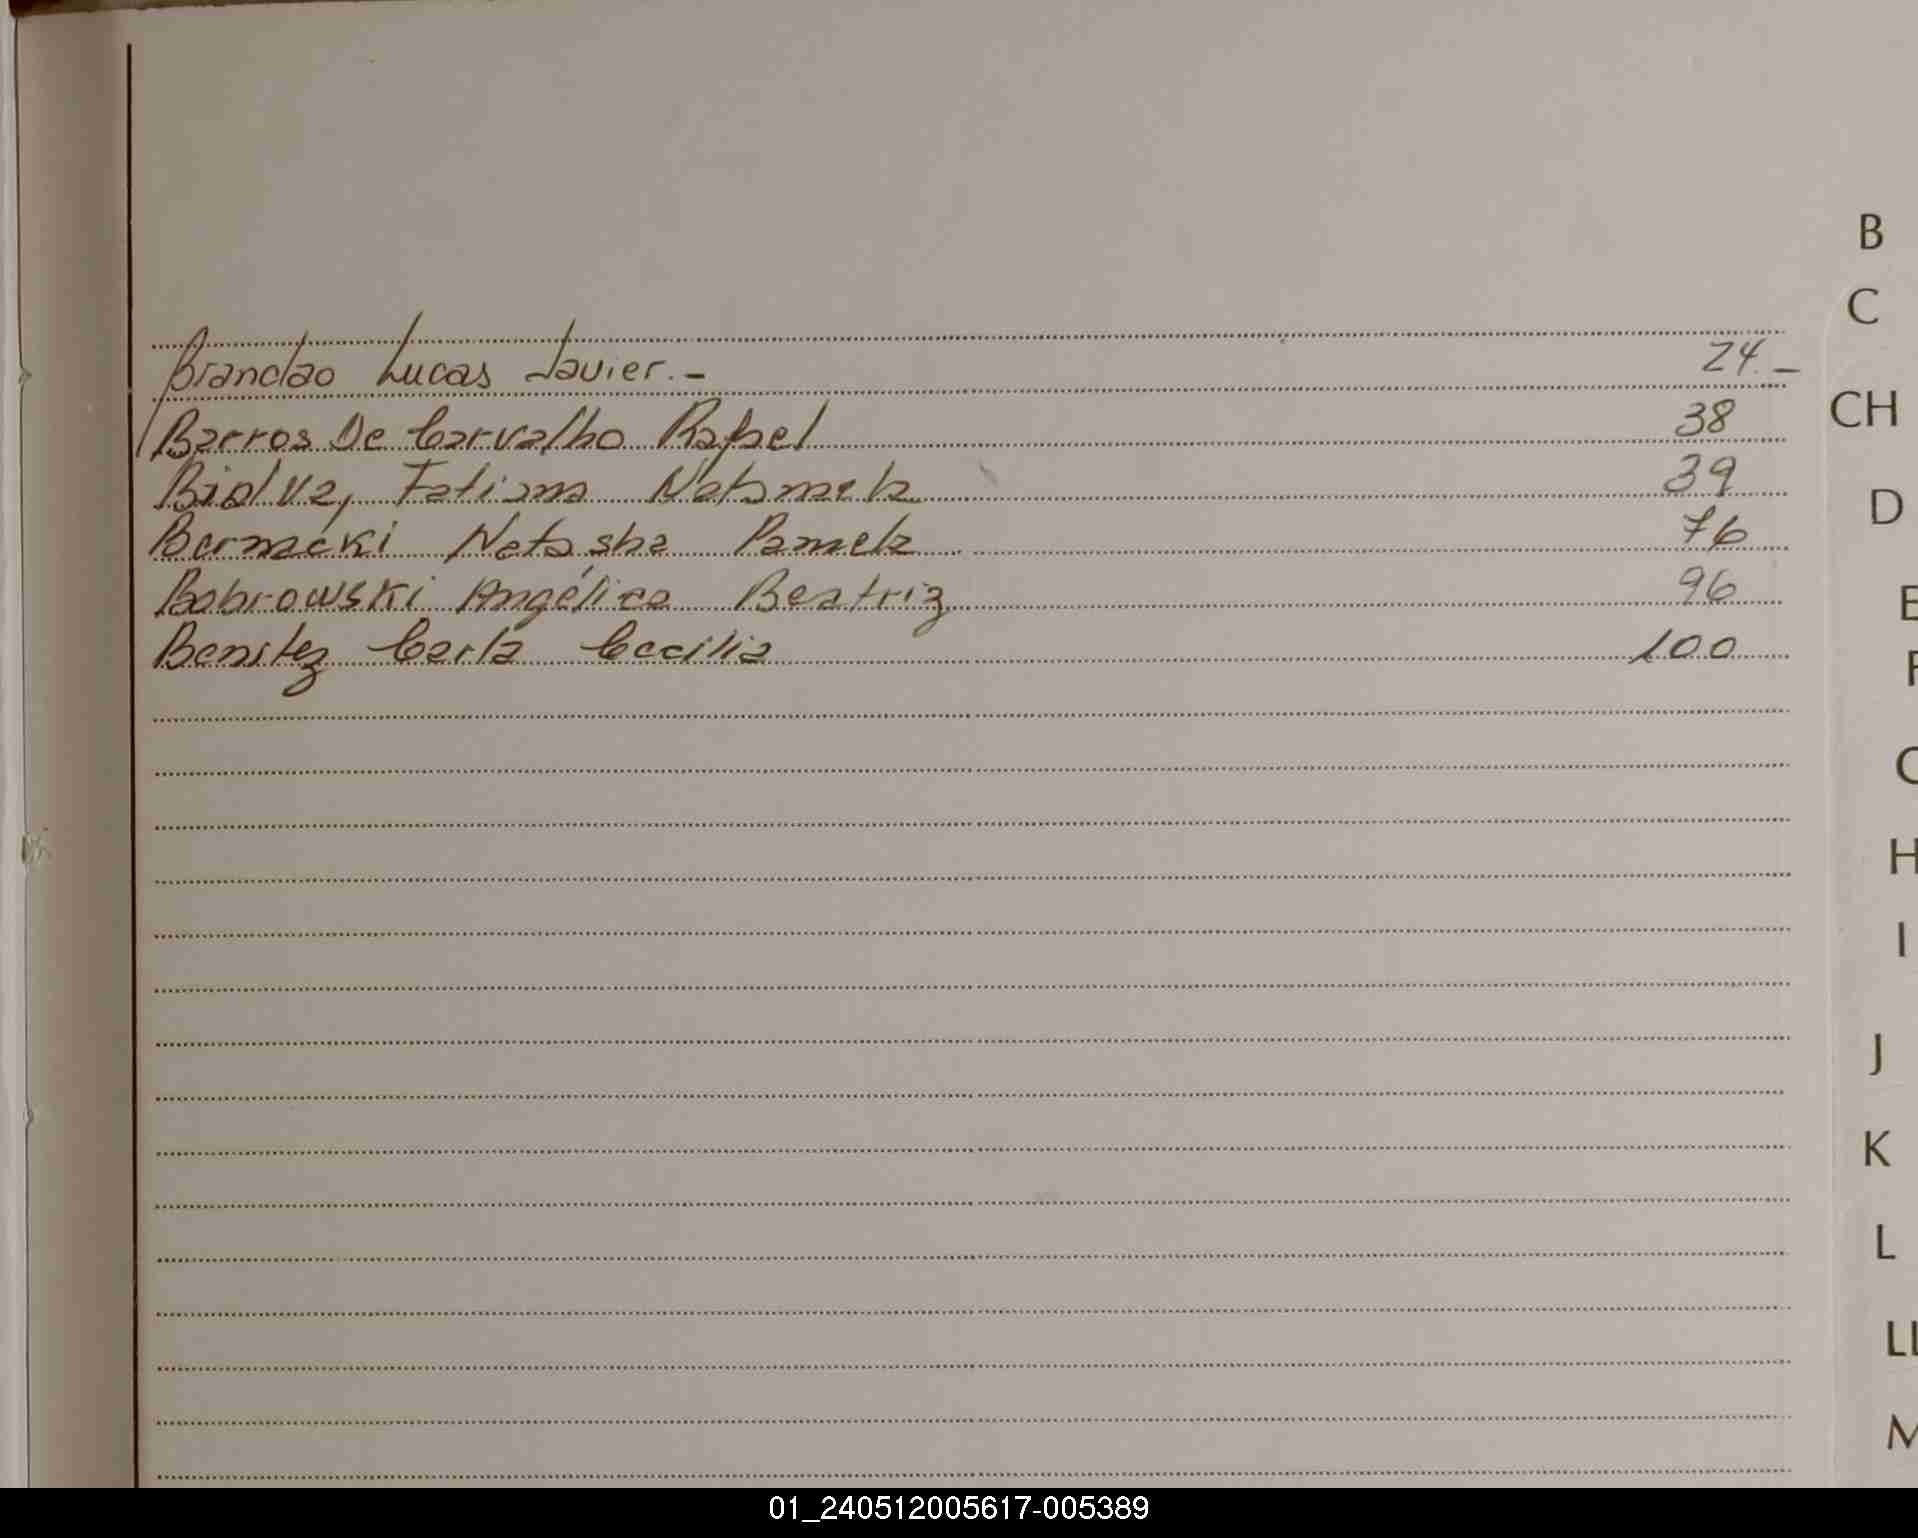 B
C
Brandao Lucas Javier.- 24.-
Barros De Carvalho Rafael 38
CH
Fatima 39
D
Natasha Pamela 76
Bobrowski Angélica Beatriz 96
E
Benitez Carla Cecilia 100
F
H
I
J
K
L
LL
M
01_240512005617-005389